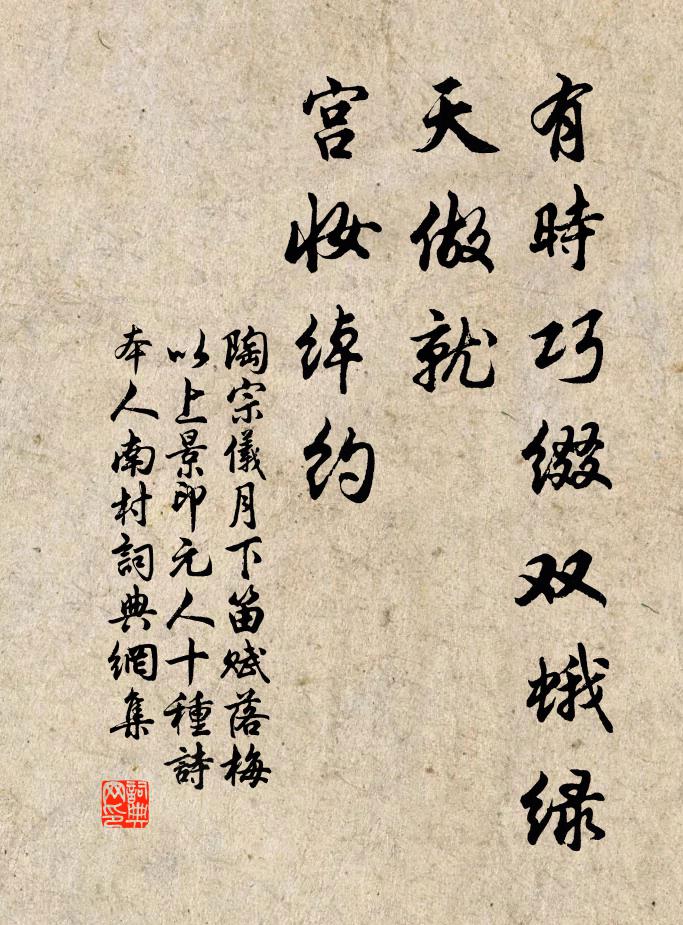 有時巧缀双蛾绿
天做就
宫妆绰约
陶宗儀月下笛賦落梅
以上景印元人十種詩
本人南村詞典網集
詞典网印